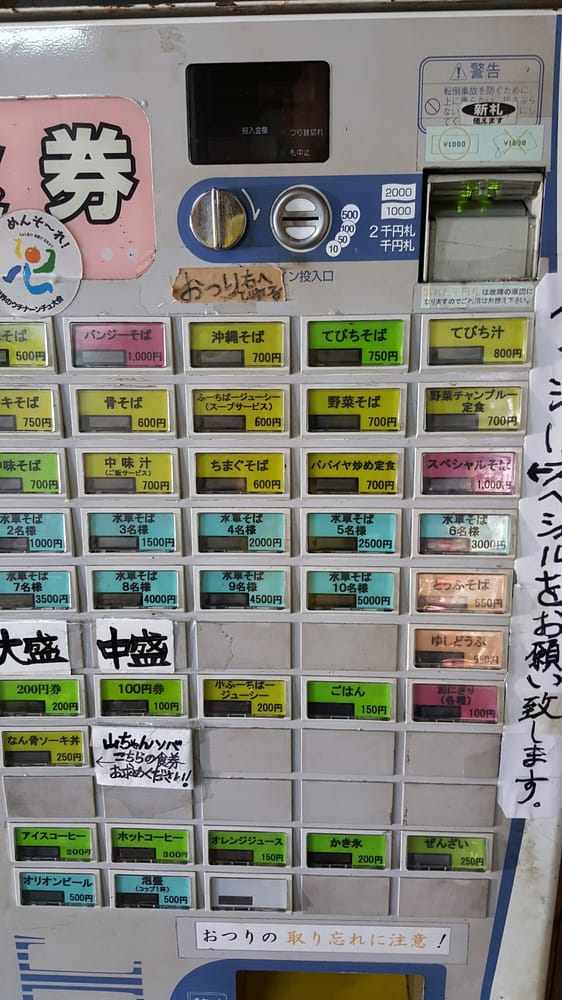 警告
転倒事故を防ぐために、
新札
使えます
¥1000
¥1000
投入金額
つり銭切れ
札中止
券
めんそ〜れ!
世界のウチナーンチュ大会
500
100
50
10
2000
1000
2千円札
千円札
イン投入口
おつり右へ
は故障の原因に
なりますのでご利用はお控え下さい。
そば
500円
バンジーそば
1,000円
沖縄そば
700円
てびちそば
750円
てびち汁
800円
キそば
750円
骨そば
600円
ふーちばージューシー
(スープサービス)
600円
野菜そば
700円
野菜チャンプルー
定食
700円
味そば
700円
中味汁
(ご飯サービス)
700円
ちまぐそば
600円
パパイヤ炒め定食
700円
スペシャルそば
1,000円
水車そば
2名様
1000円
水車そば
3名様
1500円
水車そば
4名様
2000円
水車そば
5名様
2500円
水車そば
6名様
3000円
水車そば
7名様
3500円
水車そば
8名様
4000円
水車そば
9名様
4500円
水車そば
10名様
5000円
とうふそば
550円
大盛
中盛
ゆしどうふ
200円券
200円
100円券
100円
小ふーちばー
ジューシー
200円
ごはん
150円
おにぎり
(各種)
100円
なん骨ソーキ丼
250円
山ちゃんソバ
←こちらの食券
お求めください!
アイスコーヒー
200円
ホットコーヒー
300円
オレンジジュース
150円
かき氷
200円
ぜんざい
250円
オリオンビール
500円
泡盛
(コップ1杯)
500円
おつりの取り忘れに注意!
をお願い致します。